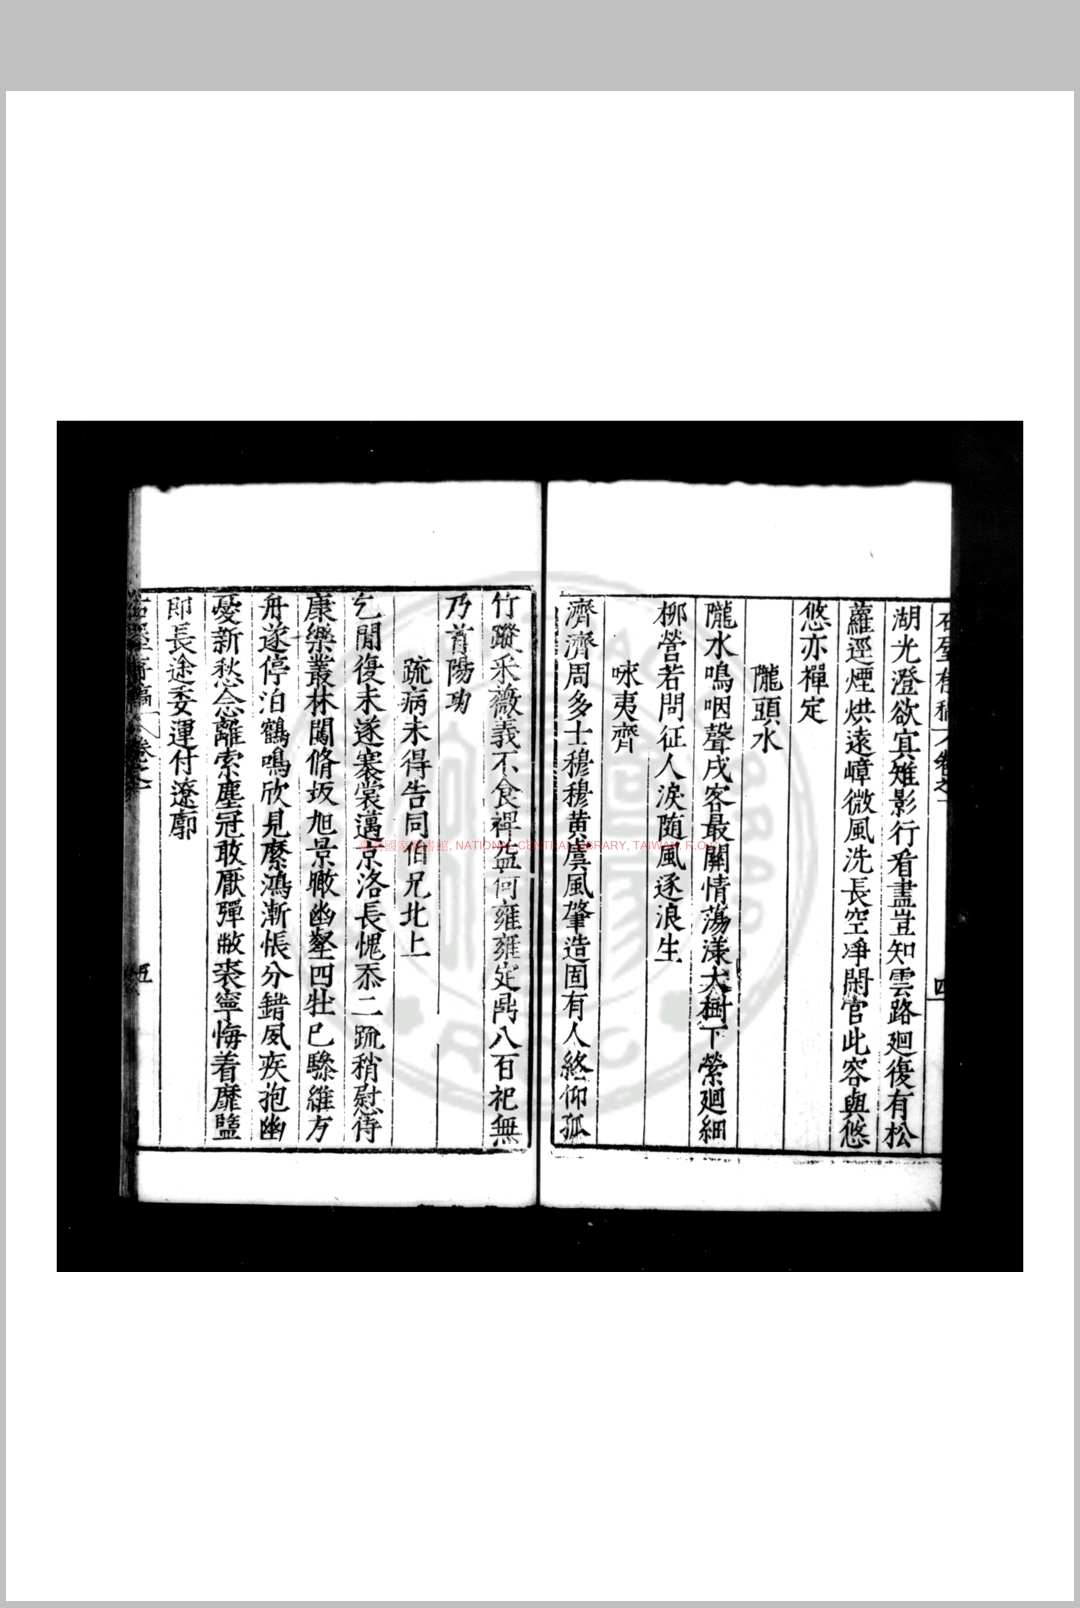 湖光澄欲宜雉影行看盡豈知雲路廻復有松
蘿逕煙烘遠嶂微風洗長空凈閑官此容與悠
悠亦禪定
隴頭水
隴水鳴咽聲戍客最關情蕩漾大樹下縈廻細
柳營若問征人淚隨風逐浪生
咏夷齊
濟濟周多士穆穆黄虞風肇造固有人終仰孤
竹蹤采薇義不食裨益何雍雍定鼎八百祀無
乃首陽功
疏病未得告同伯兄北上
乞閒復未遂褰裳邁京洛長愧忝二疏稍慰侍
康樂叢林闖脩坂旭景瞰幽壑四牡已驂維方
舟遂停泊鶴鳴欣見縻鴻漸悵分錯夙疾抱幽
憂新愁念離索塵冠敢厭彈敝裘寧悔着靡盬
即長途委運付遼廓
卷之一
四
五
國家圖書館, NATIONAL CENTRAL LIBRARY, TAIWAN, R.O.C